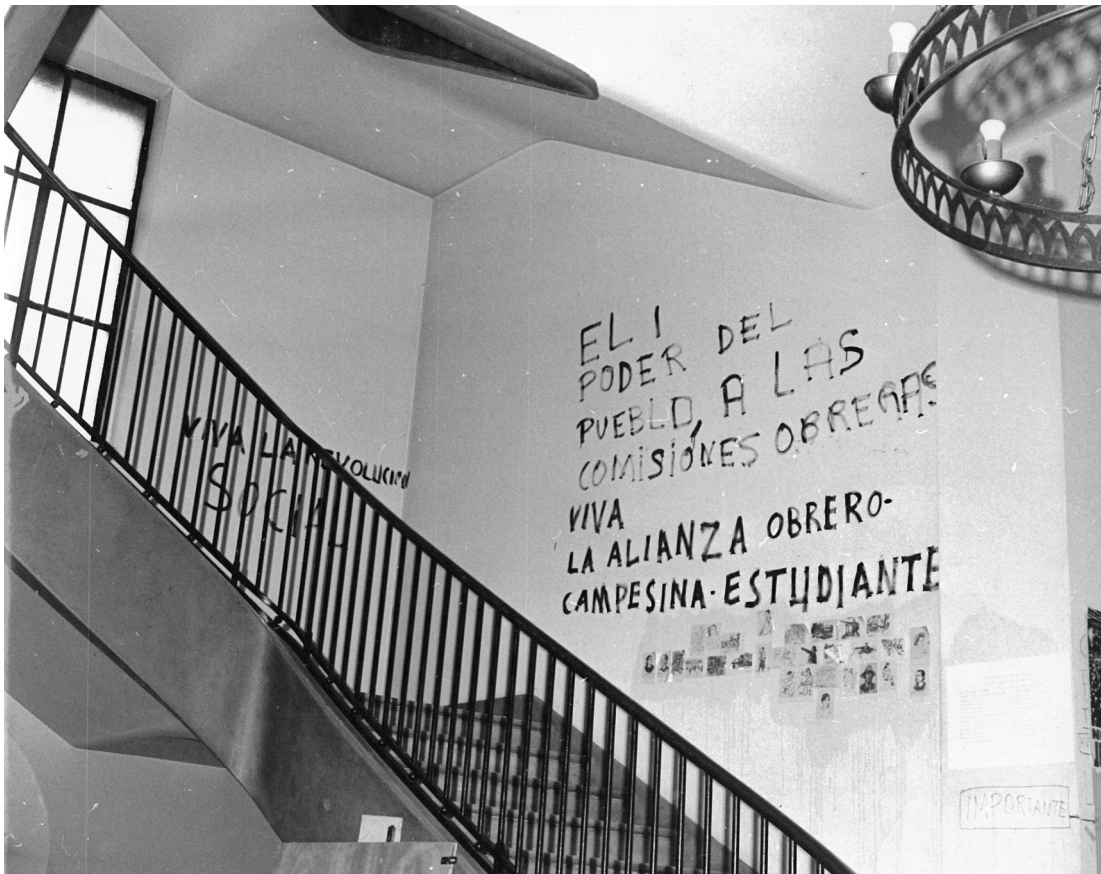 VIVA LA REVOLUCION
SOCIAL
EL
PODER DEL
PUEBLO, A LAS
COMISIONES OBRERAS
VIVA
LA ALIANZA OBRERO-
CAMPESINA-ESTUDIANTE
IMPORTANTE